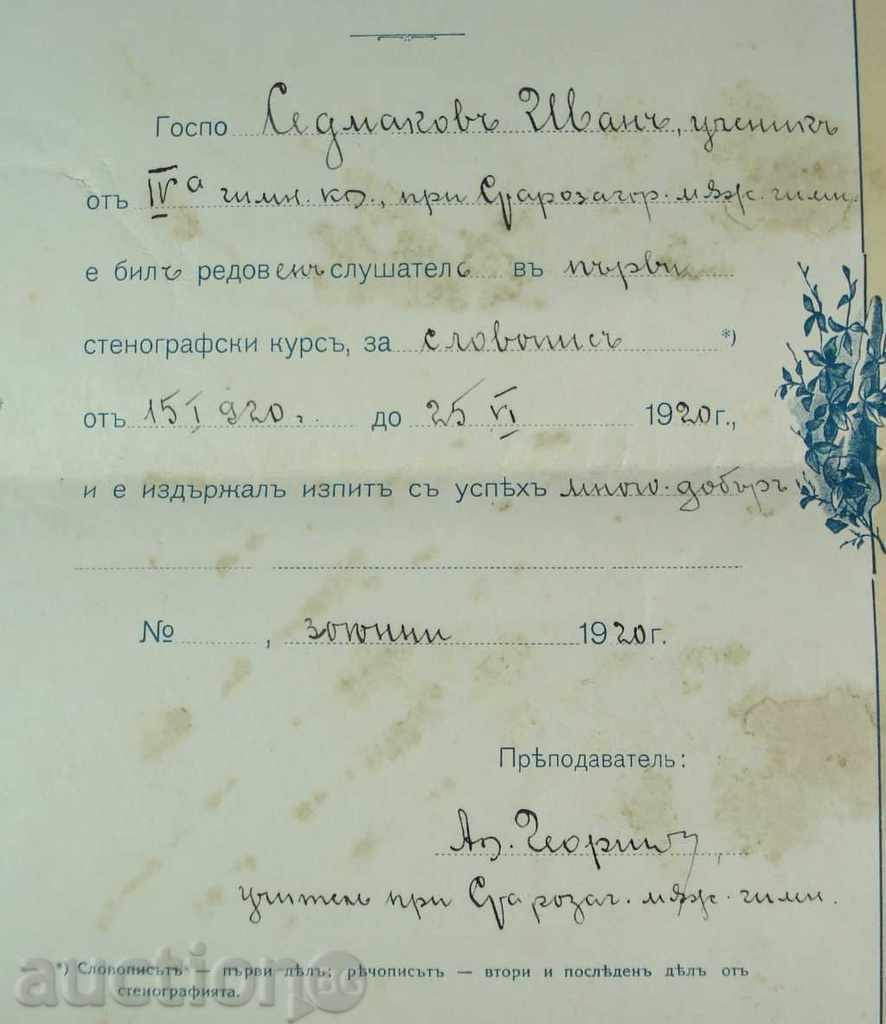 Госпо Седмаковъ Иванъ, ученикъ
отъ IVа гимн. кл., при Старозагор. мѫж. гимн.
е билъ редовенъ слушатель въ първи
стенографски курсъ, за словописъ *)
отъ 15 I 920 г. до 25 VI 1920 г.,
и е издържалъ изпитъ съ успѣхъ много добъръ
№ , 30 юний 1920 г.
Прѣподаватель:
Ал. Георгиевъ,
учитель при Старозаг. мѫж. гимн.
*) Словописътъ — първи дѣлъ; рѣчописътъ — втори и послѣденъ дѣлъ отъ
стенографията.
auction BG